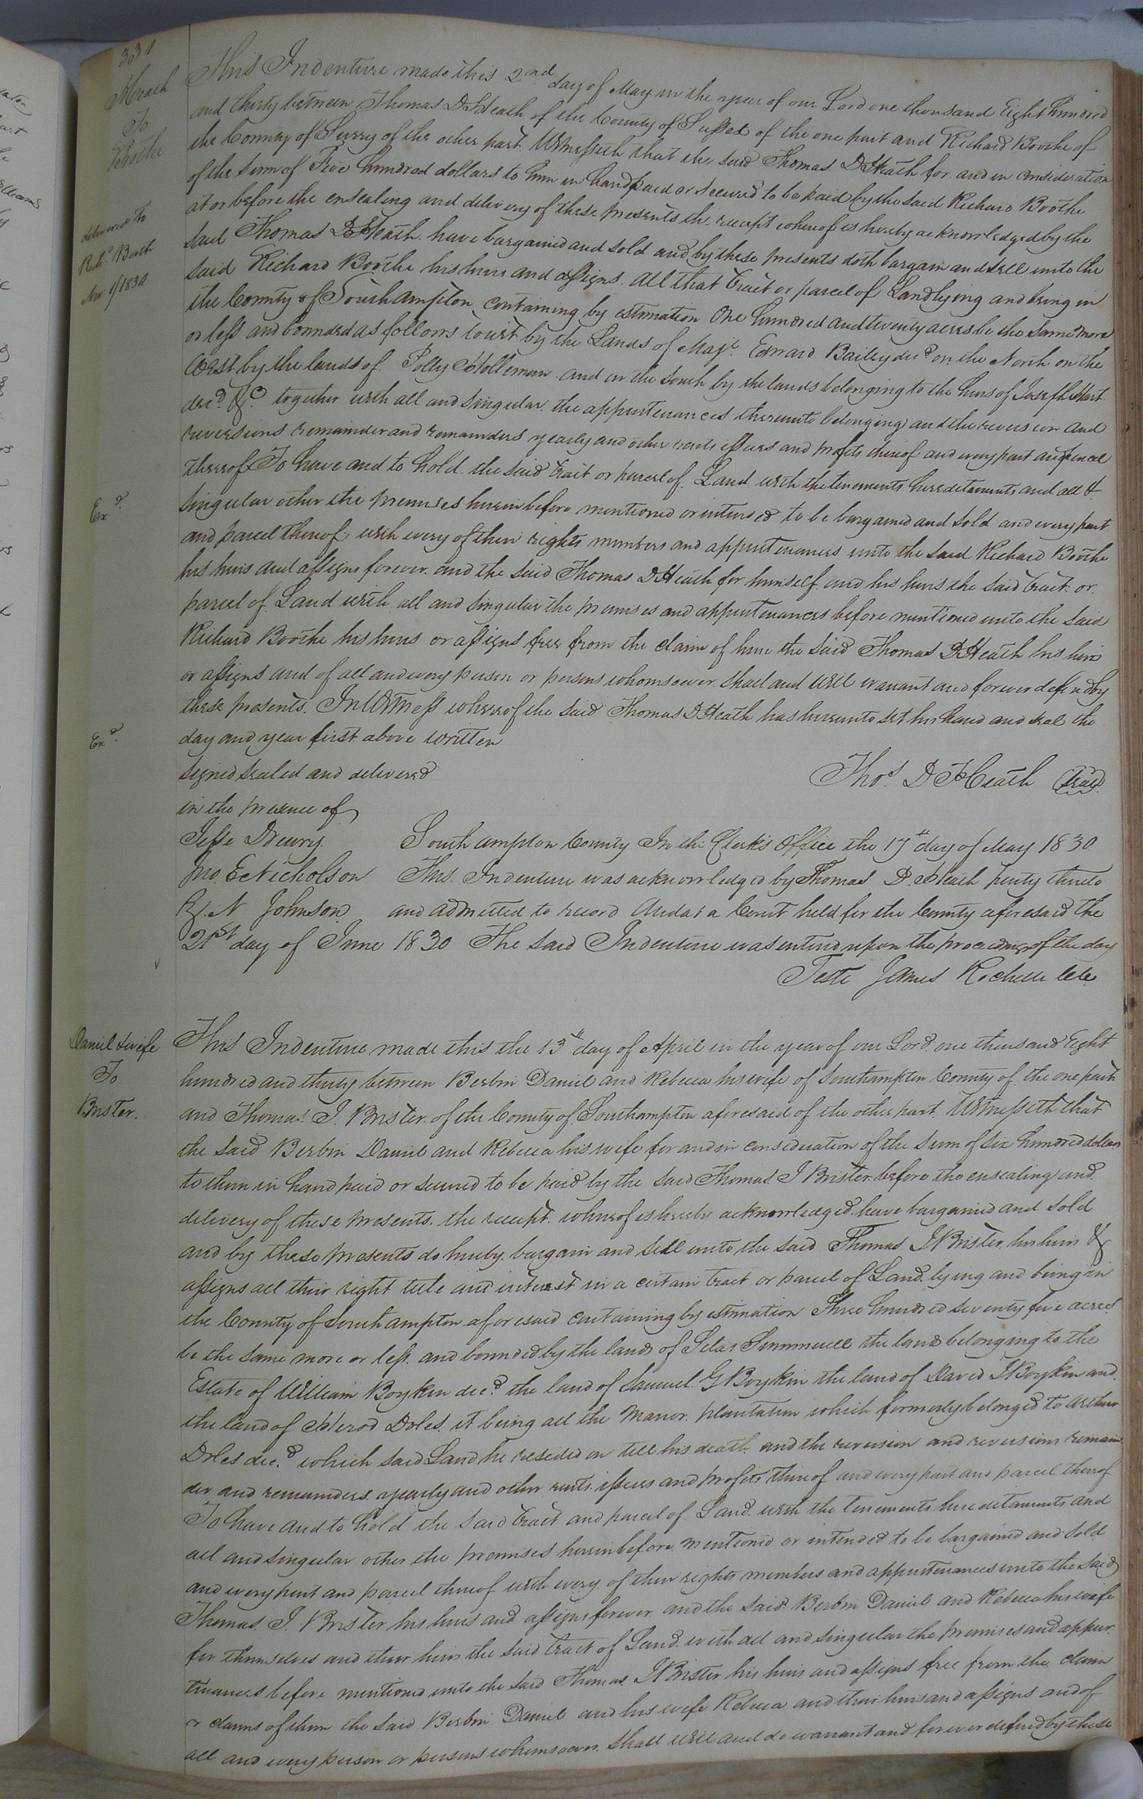 331
Heath
To
Boothe
delivered to
Richd. Booth
Nov. 1/1830
This Indenture made this 2nd day of May in the year of our Lord one thousand Eight hundred
and thirty between Thomas D Heath of the County of Sussex of the one part and Richard Boothe of
the County of Surry of the other part Witnesseth that the said Thomas D Heath for and in consideration
of the sum of Five hundred dollars to him in hand paid or secured to be paid by the said Richard Boothe
at or before the ensealing and delivery of these presents the receipt whereof is hereby acknowledged by the
said Thomas D Heath have bargained and sold and by these presents doth bargain and sell unto the
said Richard Boothe his heirs and assigns all that tract or parcel of Land lying and being in
the County of Southampton containing by estimation One hundred and twenty acres be the same more
or less and bounded as follows towit by the Lands of Majr. Edward Bailey decd. on the North on the
West by the lands of Polly Holleman and on the South by the lands belonging to the heirs of Joseph Hart
decd. &c. together with all and singular the appurtenances thereunto belonging and the reversion and
reversions remainder and remainders yearly and other rents issues and profits thereof and every part and parcel
thereof To have and to hold the said tract or parcel of Land with the tenements hereditaments and all &
Exd.
singular other the premises herein before mentioned or intended to be bargained and sold and every part
and parcel thereof with every of their rights members and appurtenances unto the said Richard Boothe
his heirs and assigns forever and the said Thomas D Heath for himself and his heirs the said tract or
parcel of Land with all and singular the premises and appurtenances before mentioned unto the said
Richard Boothe his heirs or assigns free from the claim of him the said Thomas D Heath his heirs
or assigns and of all and every person or persons whomsoever shall and will warrant and forever defend by
these presents. In Witness whereof the said Thomas D Heath has hereunto set his hand and seal the
Exd.
day and year first above written
signed sealed and delivered
Thos. D Heath (seal)
in the presence of
Jesse Drewry Southampton County In the Clerk's Office the 17th day of May 1830
Jno. E Nicholson This Indenture was acknowledged by Thomas D. Heath party thereto
R. N Johnson and admitted to record And at a Court held for the County aforesaid the
21st day of June 1830 The said Indenture was entered upon the proceedings of the day
Teste James Rochelle clk
Daniel & wife
To
Brister.
This Indenture made this the 13th day of April in the year of our Lord one thousand Eight
hundred and thirty between Berbin Daniel and Rebecca his wife of Southampton County of the one part
and Thomas J. Brister of the County of Southampton aforesaid of the other part Witnesseth that
the said Berbin Daniel and Rebecca his wife for and in consideration of the sum of six hundred dollars
to them in hand paid or secured to be paid by the said Thomas J Brister before the ensealing and
delivery of these presents the receipt whereof is hereby acknowledged have bargained and sold
and by these presents do hereby bargain and sell unto the said Thomas J Brister his heirs &
assigns all their right title and interest in a certain tract or parcel of Land lying and being in
the County of Southampton aforesaid containing by estimation Three hundred seventy five acres
be the same more or less and bounded by the lands of Silas Summerell the land belonging to the
Estate of William Boykin decd. the land of Samuel G Boykin the land of David J Boykin and
the land of Herod Doles it being all the Manor plantation which formerly belonged to Arthur
Doles decd. which said Land he resided on till his death and the reversion and reversions remain
der and remainders yearly and other rents issues and profits thereof and every part and parcel thereof
To have and to hold the said tract and parcel of Land with the tenements hereditaments and
all and singular other the premises herein before mentioned or intended to be bargained and sold
and every part and parcel thereof with every of their rights members and appurtenances unto the said
Thomas J. Brister his heirs and assigns forever and the said Berbin Daniel and Rebecca his wife
for themselves and their heirs the said tract of Land with all and singular the premises and appur
tenances before mentioned unto the said Thomas J Brister his heirs and assigns free from the claim
or claims of them the said Berbin Daniel and his wife Rebecca and their heirs and assigns and of
all and every person or persons whomsoever shall will and do warrant and forever defend by these